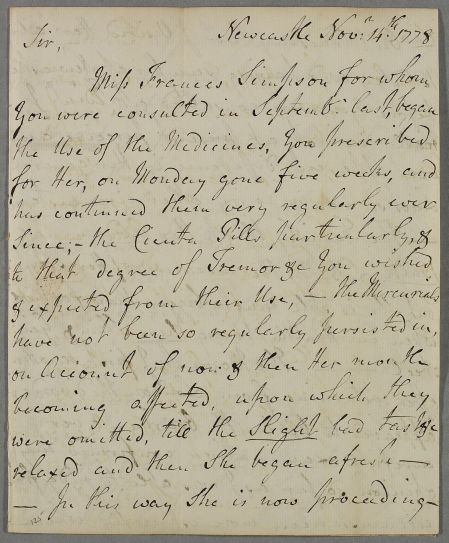 Newcastle Nov.r 14.th 1778
Sir,
Miss Frances Simpson for whom
You were consulted in Septemb.r last, began
the Use of the Medicines, You prescribed
for Her, on Monday gone five weeks, and
has continued them very regularly ever
Since; - the Cicuta Pills particularly, &
to that degree of Tremor &c You wished
& expected from their Use, - the Mercurials
have not been so regularly persisted in,
on Account of now & then Her mouth
becoming affected, upon which they
were omitted, till the Slight bad taste &c
relaxed and then She began afresh -
- In this way She is now proceeding -